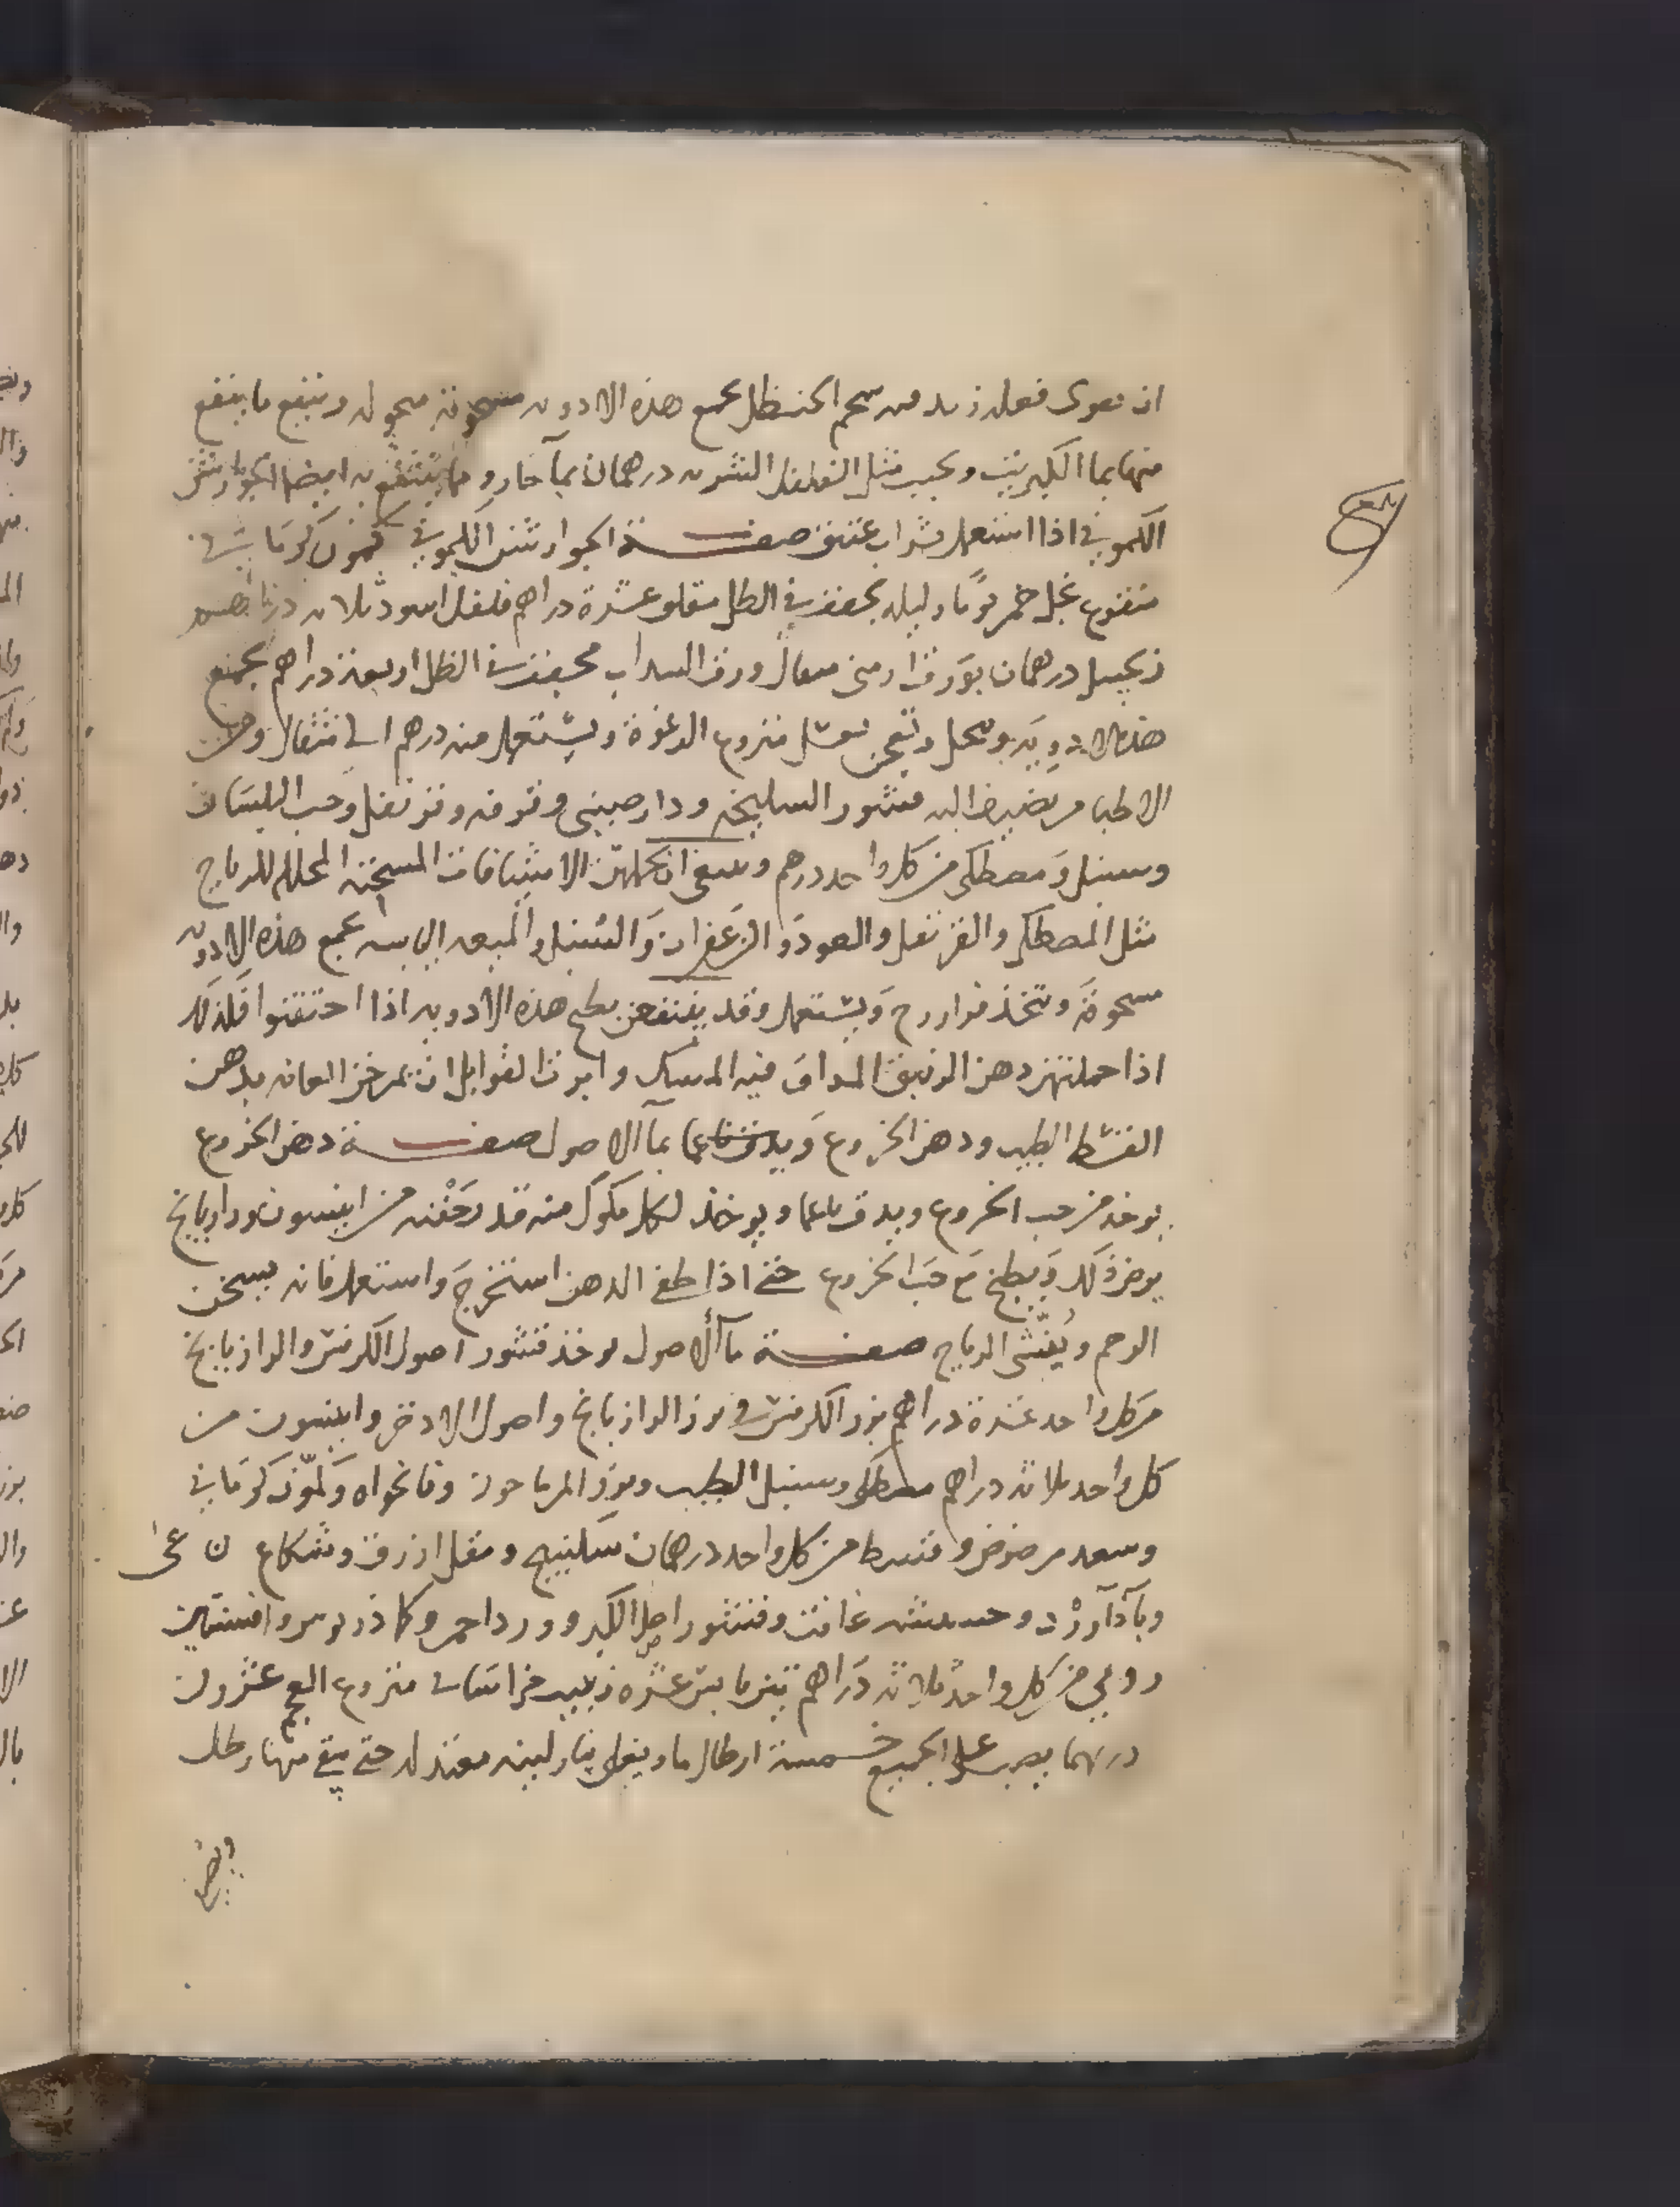 ان يقوى فعله زيد من شحم الحنظل يجمع هذه الادويه مسحوقة منخوله وينقع ما ينقع
منها بما الكبريت ويحبب مثل الفلفل الشربه درهمان بمآ حار ومما ينتفع به ايضا الجوارشن
الكموني اذا استعمل بشراب عتيق صفة الجوارشن الكموني كمون كرماني
منقوع بخل خمر يومًا وليله يجفف في الظل مقلو عشرة دراهم فلفل اسود ثلاثه دراهم
زنجبيل درهمان بورق ارمني مثقال ورق السداب مجفف في الظل اربعة دراهم يجمع
هذه الادويه وتنخل وتعجن بعسل منزوع الرغوة ويستعمل منه درهم الى مثقال ومن
الاطبا من يضيف اليه قشور السليخه ودارصيني وقرفه وقرنفل وحب البلسان
وسنبل ومصطكى من كل واحد درهم وينبغي ان يحملهن الاشيافات المسخنه المحلله للرياح
مثل المصطكى والقرنفل والعود والزعفران والسنبل والميعه اليابسه يجمع هذه الادويه
مسحوقة وتتخذ فرازج ويستعمل وقد ينتفعن بطبخ هذه الادويه اذا احتقنوا فكذلك
اذا حملتهن دهن الزنبق المداف فيه المسك وامرت القوابل ان يمرخن العانه بدهن
القسط الطيب ودهن الخروع بمآ الاصول صفة دهن الخروع
يوخذ من حب الخروع ويدق ناعما ويوخذ لكل مكوك منه قدر حفنه من انيسون ورازيانج
يرض ذلك ويطبخ مع حب الخروع حتى اذا طفى الدهن استخرج واستعمل فانه يسخن
الرحم ويفشى الرياح صفة مآ الاصول يوخذ قشور اصول الكرفس والرازيانج
من كل واحد عشرة دراهم بزر الكرفس وبزر الرازيانج واصول الاذخر وانيسون من
كل واحد ثلاثه دراهم مصطكى وسنبل الطيب وبزر المرماحوز ونانخواه وكمون كرماني
وسعد مرضوض وقسط من كل واحد درهمان سكبينج ومقل ازرق وشكاعى
وباذاورد وحشيشه غافت وقشور اصل الكبر وورد احمر وكماذريوس وافسنتين
رومي من كل واحد ثلاثه دراهم تين يابس عشره زبيب خراساني منزوع العجم عشرون
درهما يصب على الجميع خمسة ارطال ما ويغلى بنار لينه معتدله حتى يبقى منها رطل